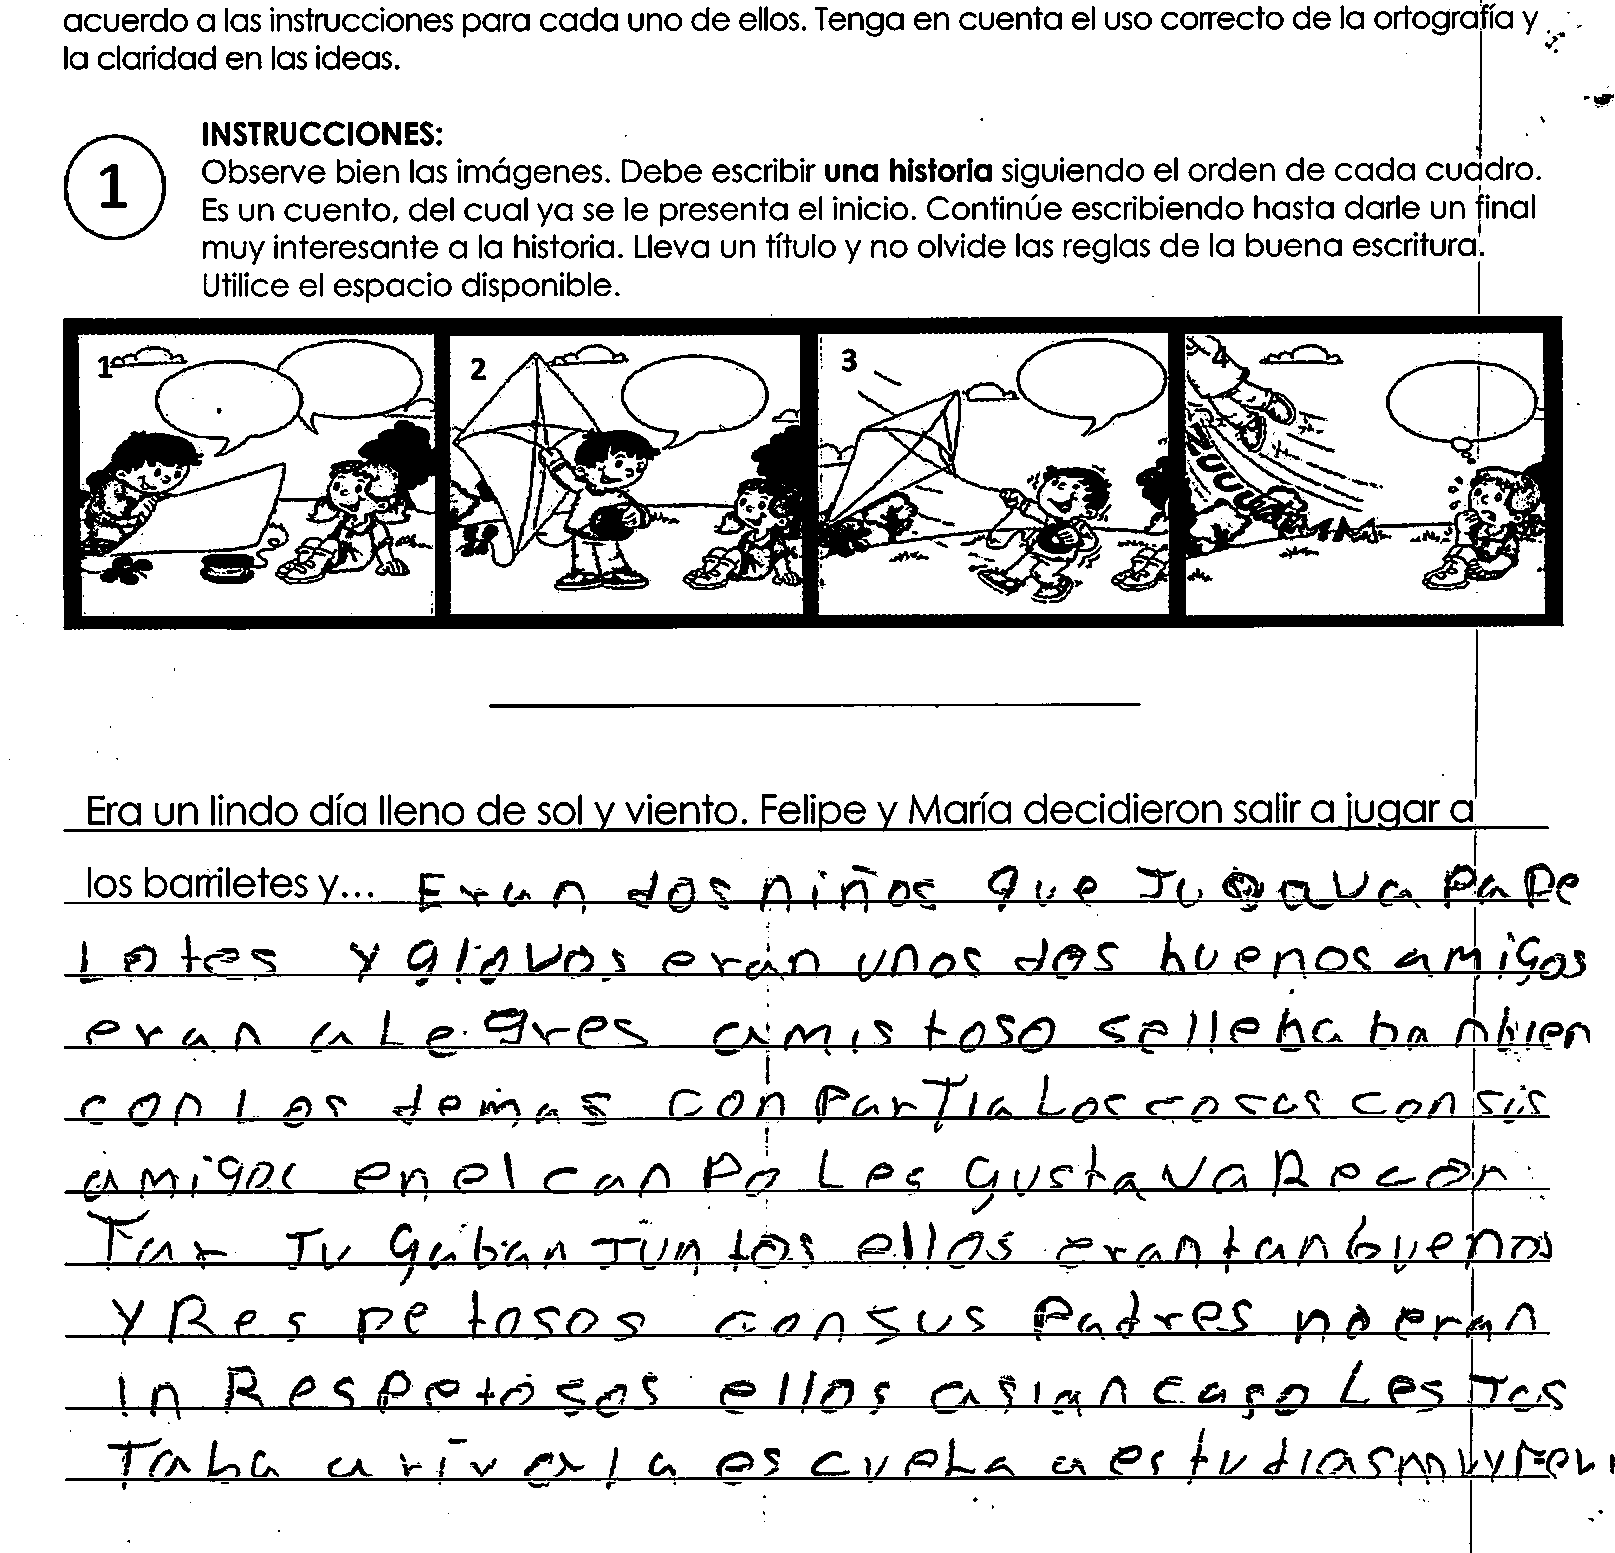 acuerdo a las instrucciones para cada uno de ellos. Tenga en cuenta el uso correcto de la ortografía y
la claridad en las ideas.
INSTRUCCIONES:
1
Observe bien las imágenes. Debe escribir una historia siguiendo el orden de cada cuadro.
Es un cuento, del cual ya se le presenta el inicio. Continúe escribiendo hasta darle un final
muy interesante a la historia. Lleva un título y no olvide las reglas de la buena escritura.
Utilice el espacio disponible.
1 2 3 4
ZUUUUMMM
Era un lindo día lleno de sol y viento. Felipe y María decidieron salir a jugar a
los barriletes y... Eran dos niños que Jugava PaPe
Lotes y glovos eran unos dos buenos amigos
eran aLegres amistoso sellebaba nbien
con Los demas conParTia Los cosas con sis
amigos en el canPo Les gustava Recor
Tar Jugaban Juntos ellos eran tan buenos
y Respetosos con sus Padres no eran
in RespetOsos ellos asian caso Les Jos
Taba a rivor la escueLa a estudias muy